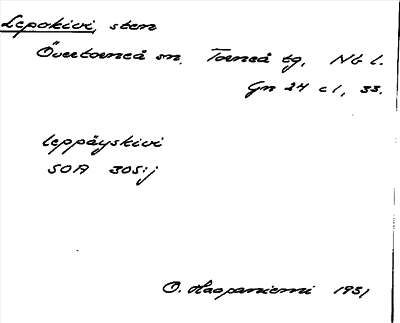 Lepokivi, sten
Övertorneå sn. Torneå tg, Nb l.
Gn 24 c 1, 33.
leppäyskivi
SOA 305:j
O. Haapaniemi 1951